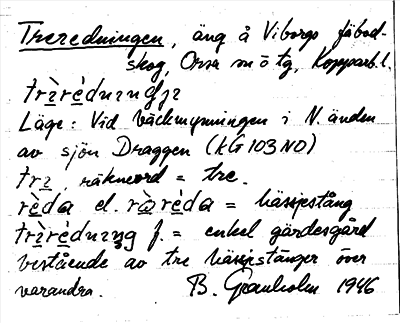 Treredningen, äng å Viborgs fäbod-
skog, Orsa sn ö tg, Kopparb. l.
trìrédnıngɟı
Läge: Vid bäckmynningen i N. änden
av sjön Draggen (kG 103 NO)
trı, räkneord = tre.
rèda el. ràréda = hässjestång
trìrédnıng f. = enkel gärdesgård
bestående av tre hässjestänger över
varandra. B. Granholm 1946